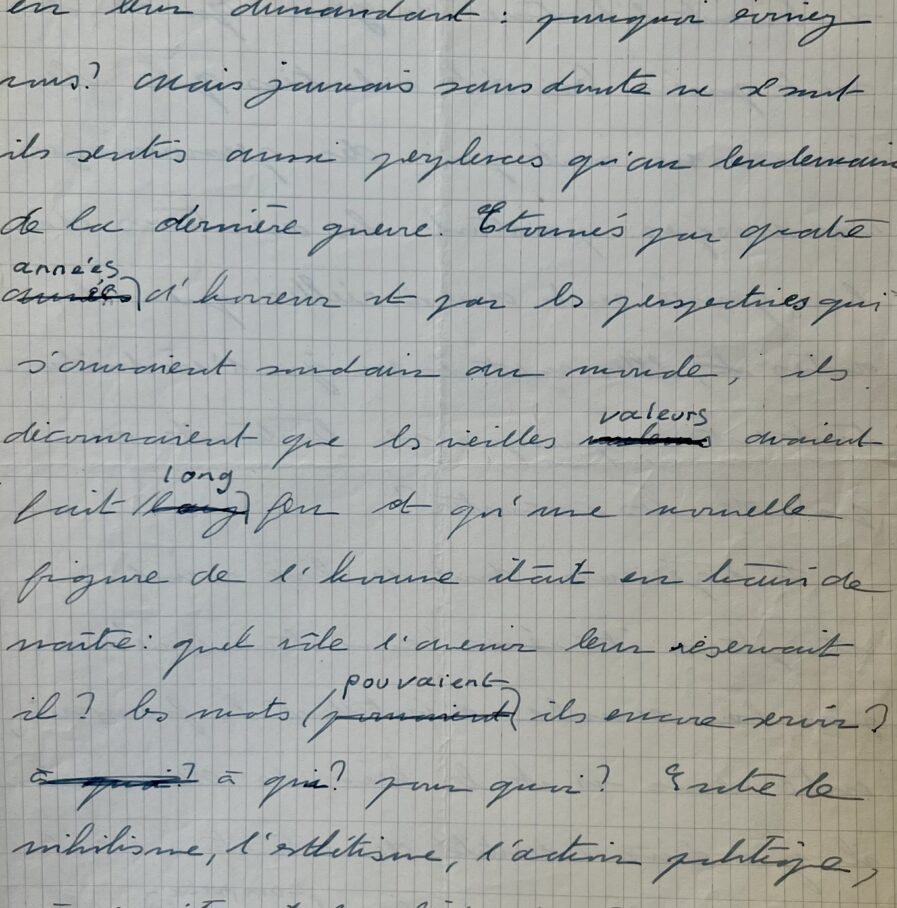 en leur demandant : pourquoi écrivez
vous? Mais jamais sans doute ne se sont
ils sentis aussi perplexes qu'au lendemain
de la dernière guerre. Etonnés par quatre
années
années d'horreur et par les perspectives qui
s'ouvraient soudain au monde, ils
découvraient que les vieilles valeurs avaient
valeurs
long
fait (long) feu et qu'une nouvelle
figure de l'homme était en train de
naître: quel rôle l'avenir leur réservait
pouvaient
il? les mots (pouvaient) ils encore servir?
à quoi? à qui? pour quoi? Entre le
nihilisme, l'esthétisme, l'action politique,